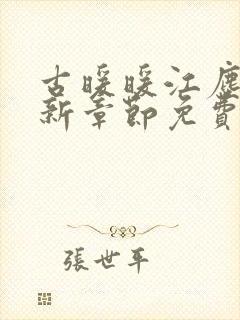 古暖暖江塵
新章節免費
張世平